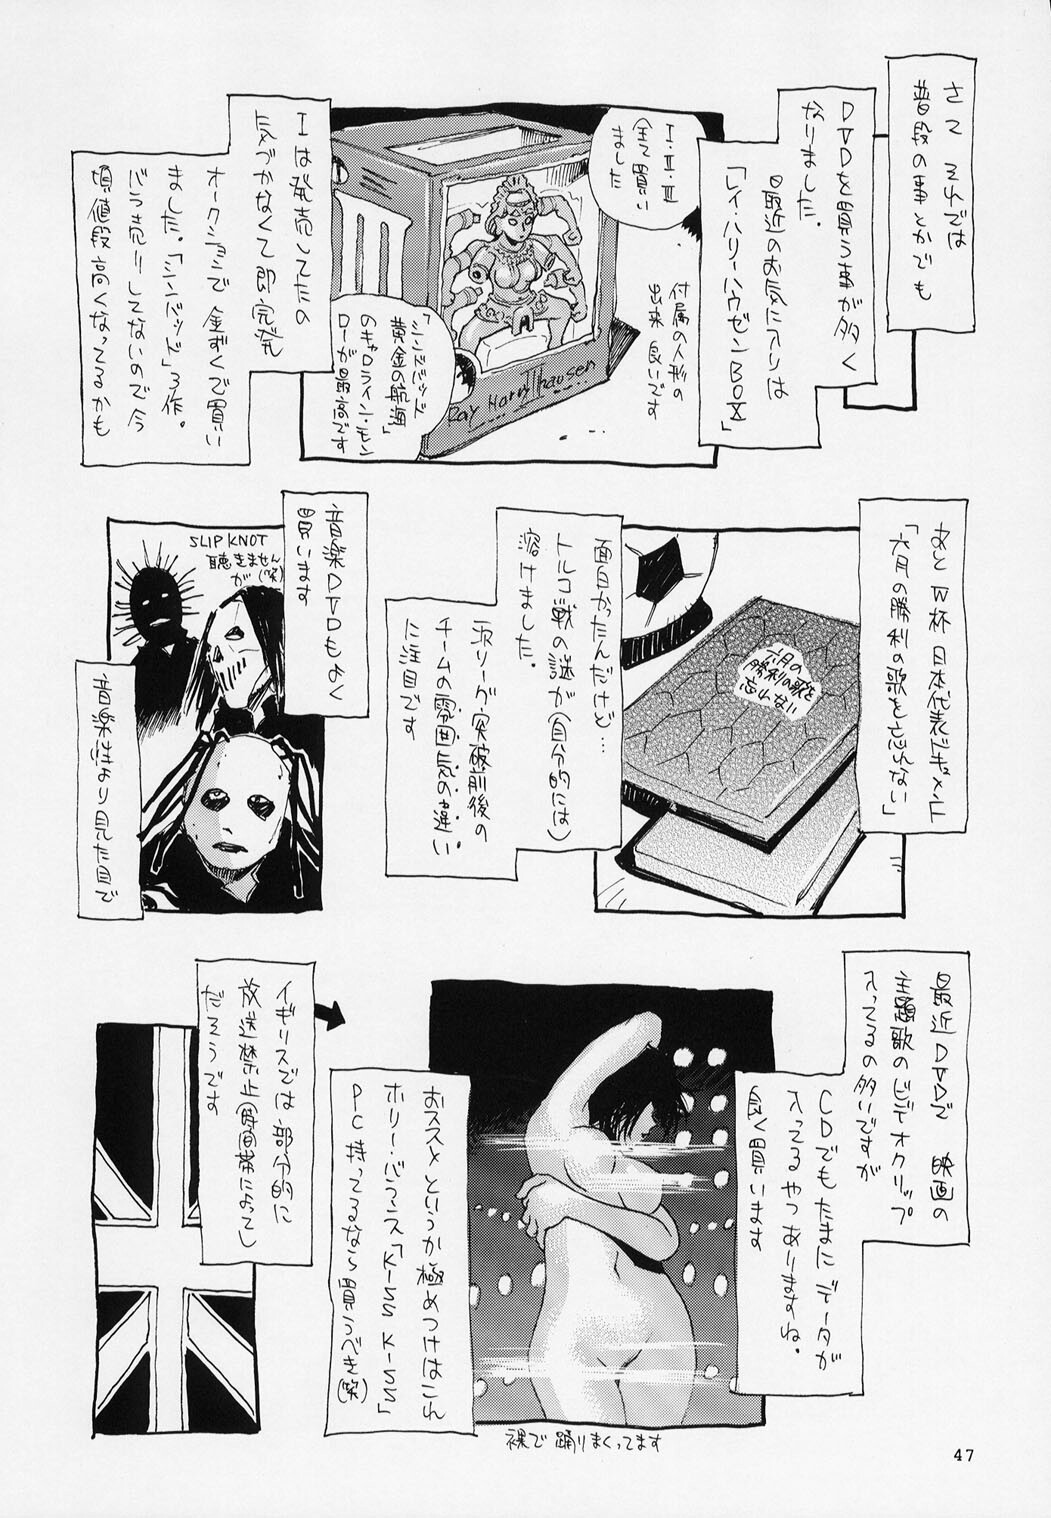 さて それでは
普段の事とかでも
DVDを買う事が多く
なりました.
最近のお気に入りは
「レイ・ハリーハウゼンBOX」
I・II・III
全て買い
ました
付属の人形の
出来 良いです
Ray Harryhausen
II
「シンドバッド
黄金の航海」
のキャロライン・モン
ローが最高です
Iは発売してたの
気づかなくて即完売
オークションで金ずくで買い
ました.「シンバッド」3作.
バラ売りしてないので今
頃値段高くなってるかも
あと W杯 日本代表ドキュメント
「六月の勝利の歌を忘れない」
六月の
勝利の歌を
忘れない
面白かったんだけど…
トルコ戦の謎が(自分的には)
溶けました.
次リーグ突破前後の
チームの雰囲気の違い.
に注目です
音楽DVDもよく
買います
SLIP KNOT
聴きません
が(笑)
音楽性より見た目で
最近DVDで 映画の
主題歌のビデオクリップ
入ってるの多いですが
CDでもたまにデータが
入ってるやつありますね.
良く買います
おススメというか極めつけはこれ
ホリー・バランス「KISS KISS」
PC持ってるなら買うべき(笑)
裸で踊りまくってます
イギリスでは部分的に
放送禁止(時間帯によって)
だそうです
47